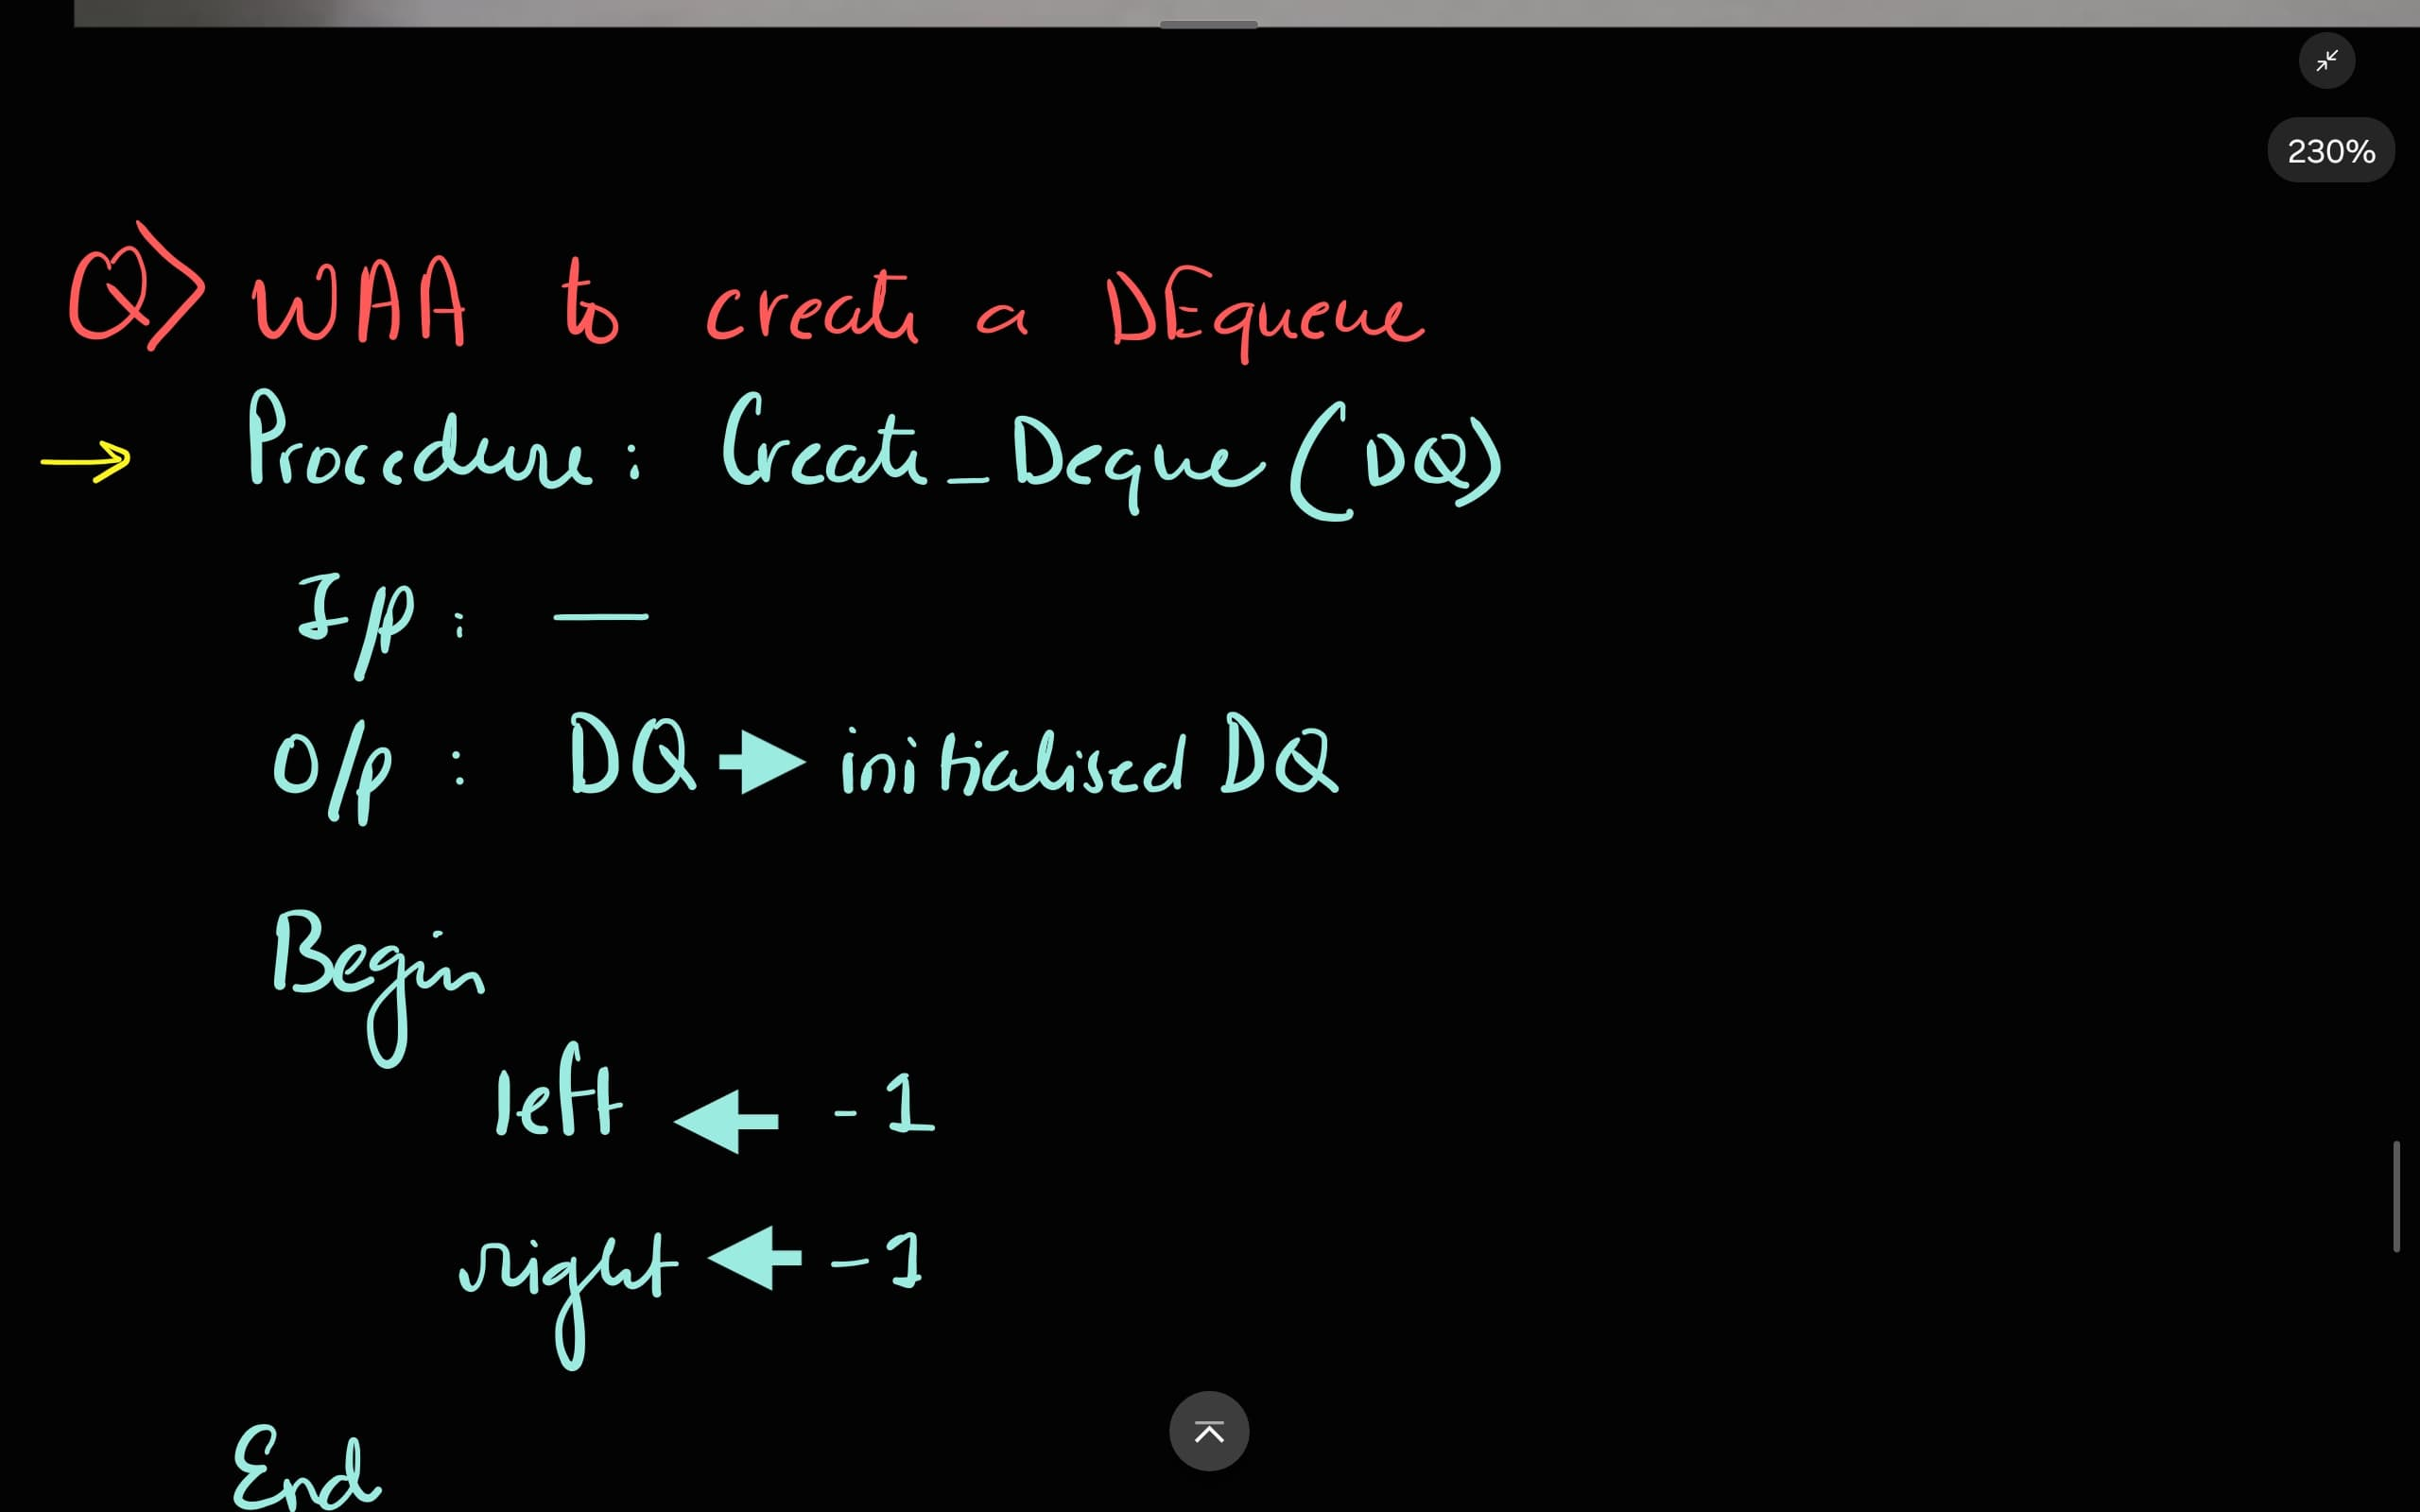 230%
Q> WAA to create a DEqueue
→ Procedure : Create_Deque (DQ)
I/p : —
O/p : DQ → initialised DQ
Begin
left ← -1
right ← -1
End